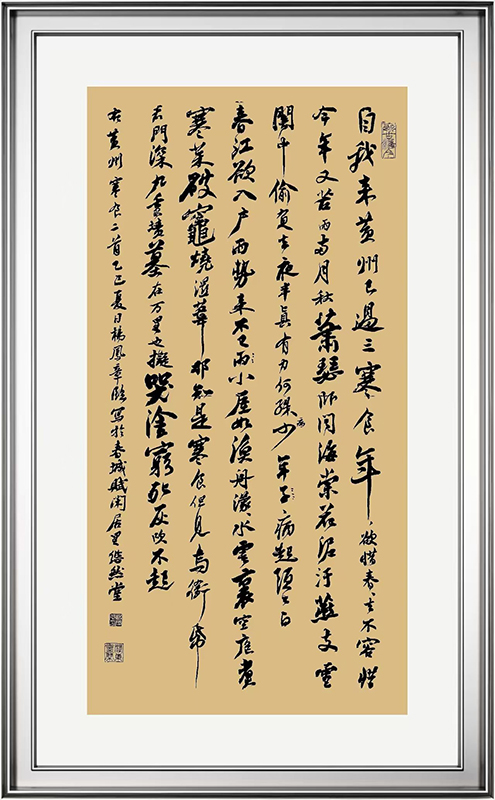 自我來黃州已過三寒食年〻欲惜春〻去不容惜
今年又苦雨兩月秋蕭瑟臥聞海棠花泥汙燕支雪
闇中偷負去夜半真有力何殊病少年子病起頭已白
春江欲入戶雨勢來不已雨小屋如漁舟濛〻水雲裏空庖煮
寒菜破竈燒濕葦那知是寒食但見烏銜帋
君門深九重墳墓在万里也擬哭塗窮死灰吹不起
右黃州寒食二首乙巳夏日楊鳳章臨寫於春城賦閑居里悠然堂